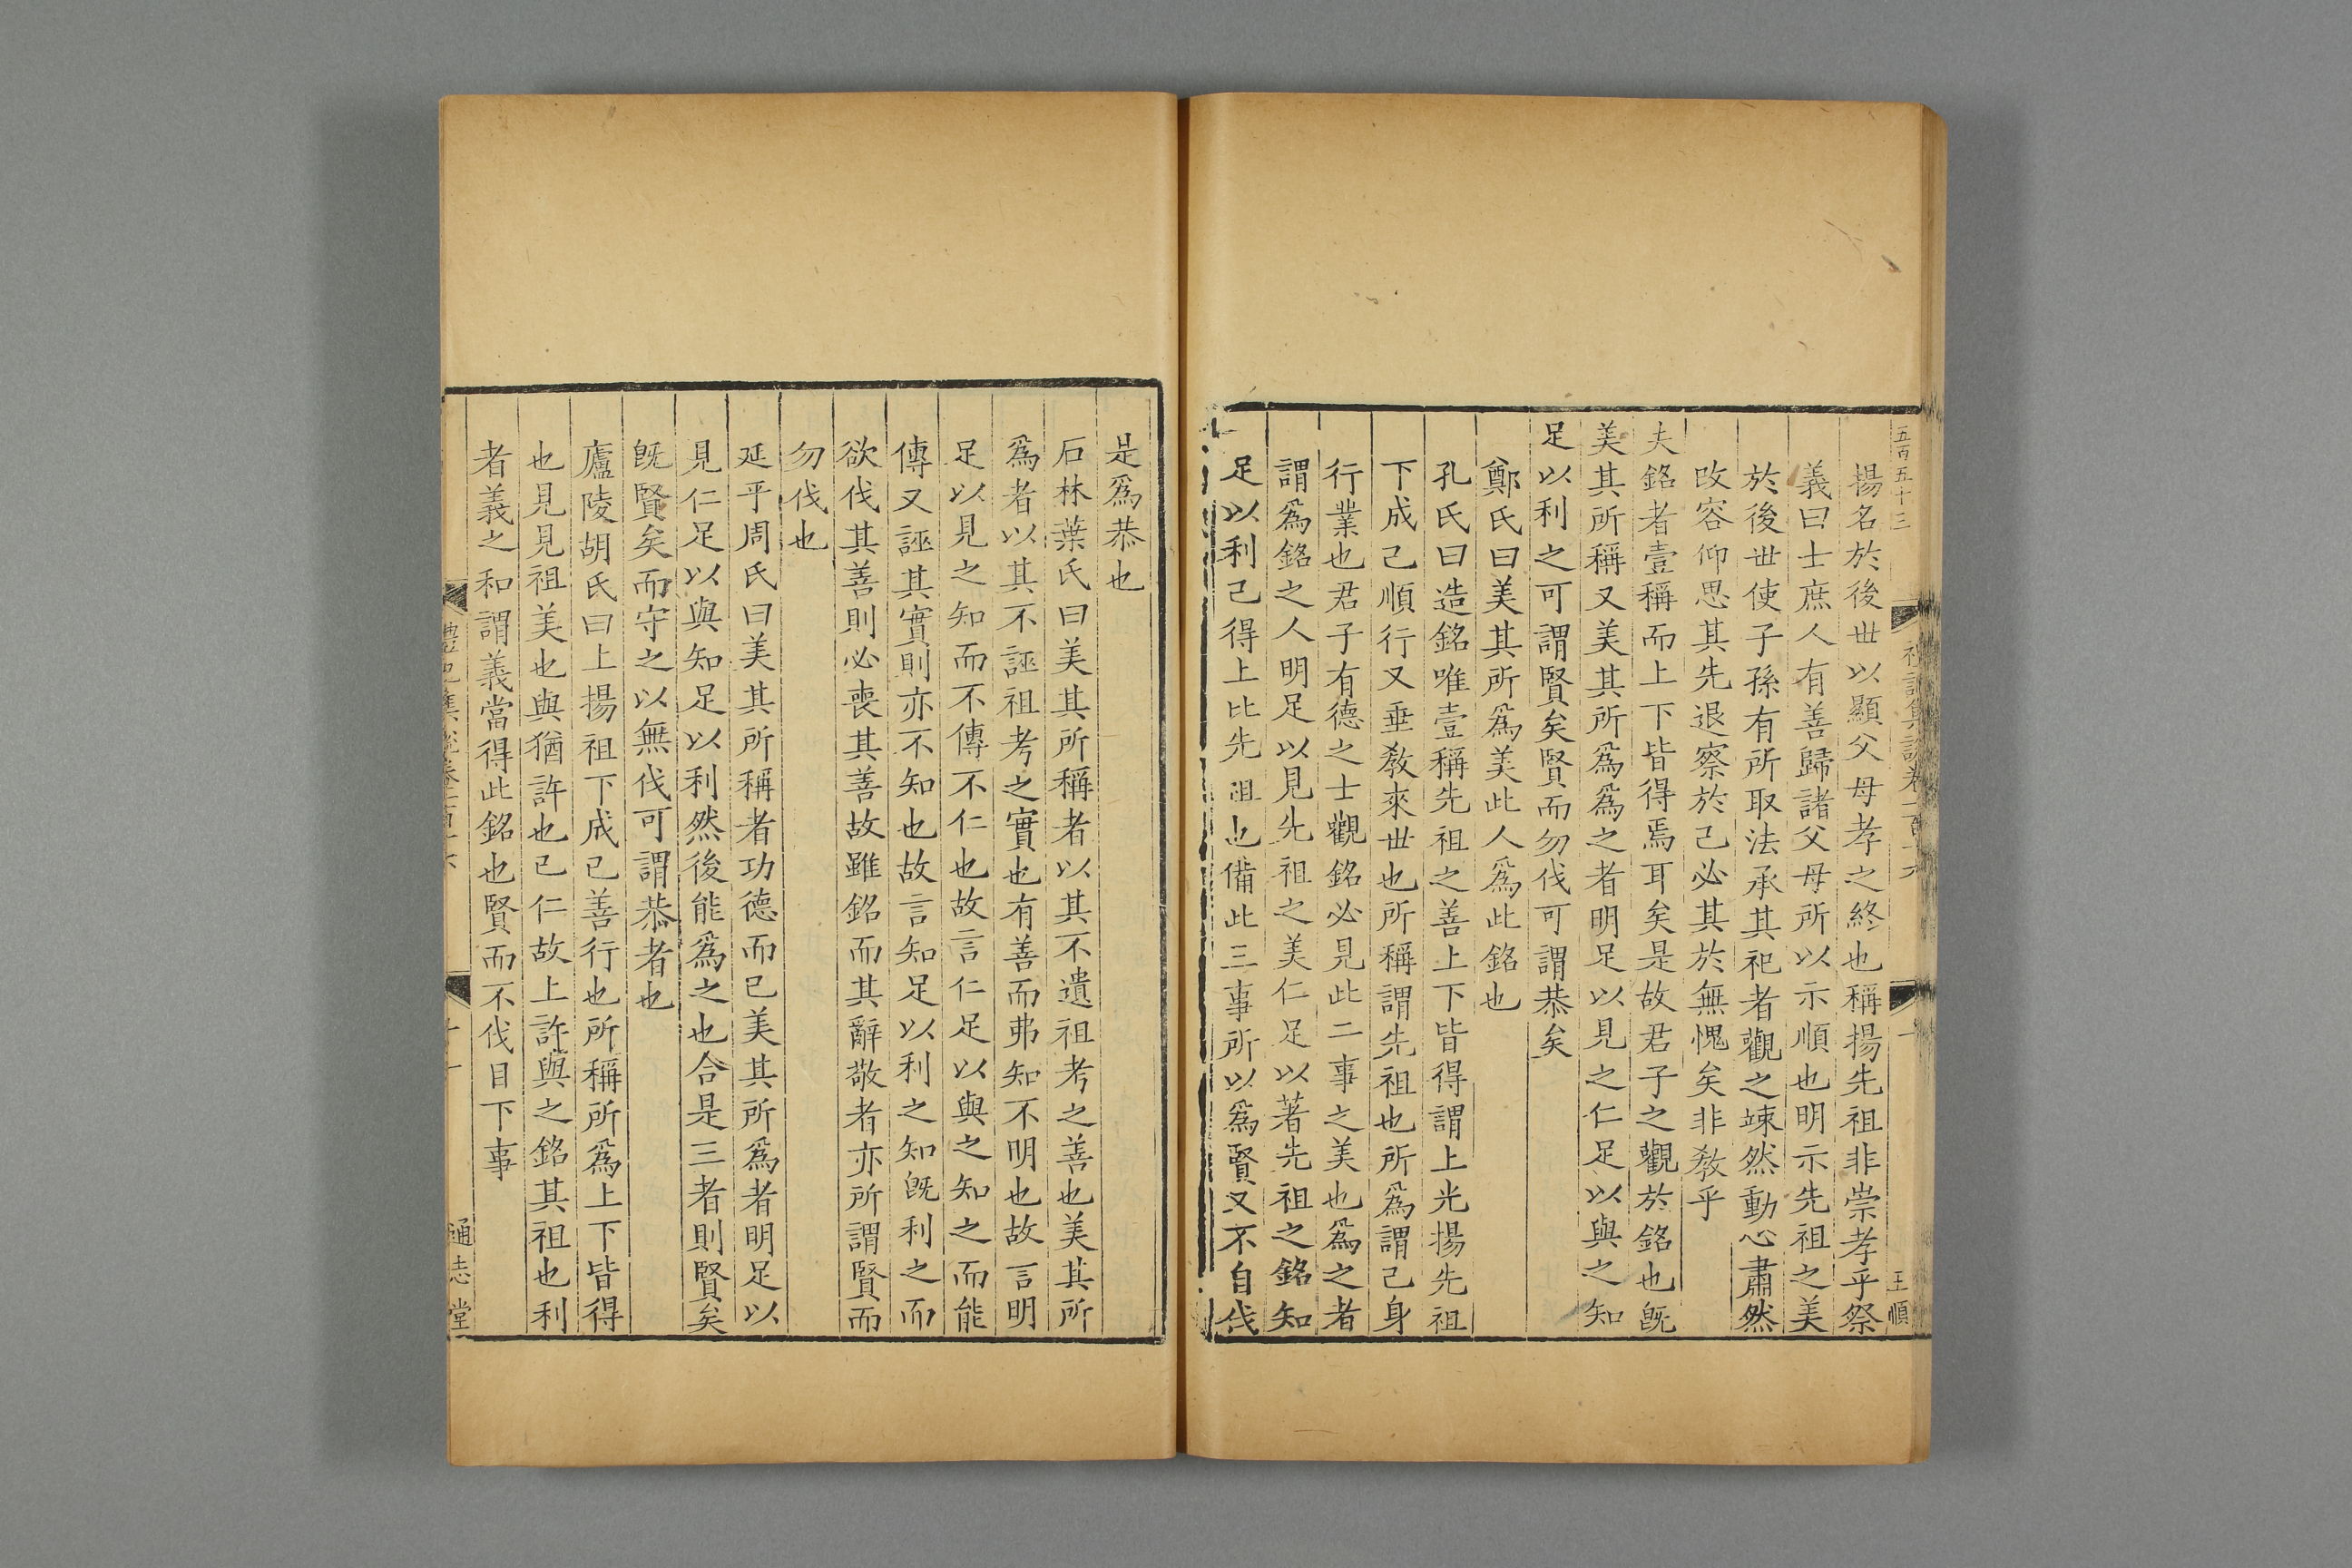 五百五十三
王順
揚名於後世以顯父母孝之終也稱揚先祖非崇孝乎祭
義曰士庶人有善歸諸父母所以示順也明示先祖之美
於後世使子孫有所取法承其祀者觀之竦然動心肅然
改容仰思其先退察於己必其於無愧矣非敎乎
夫銘者壹稱而上下皆得焉耳矣是故君子之觀於銘也旣
美其所稱又美其所爲爲之者明足以見之仁足以與之知
足以利之可謂賢矣賢而勿伐可謂恭矣
鄭氏曰美其所爲美此人爲此銘也
孔氏曰造銘唯壹稱先祖之善上下皆得謂上光揚先祖
下成己順行又垂敎來世也所稱謂先祖也所爲謂己身
行業也君子有德之士觀銘必見此二事之美也爲之者
謂爲銘之人明足以見先祖之美仁足以著先祖之銘知
足以利己得上比先祖也備此三事所以爲賢又不自伐
是爲恭也
石林葉氏曰美其所稱者以其不遺祖考之善也美其所
爲者以其不誣祖考之實也有善而弗知不明也故言明
足以見之知而不傳不仁也故言仁足以與之知之而能
傳又誣其實則亦不知也故言知足以利之知旣利之而
欲伐其善則必喪其善故雖銘而其辭敬者亦所謂賢而
勿伐也
延平周氏曰美其所稱者功德而已美其所爲者明足以
見仁足以與知足以利然後能爲之也合是三者則賢矣
旣賢矣而守之以無伐可謂恭者也
廬陵胡氏曰上揚祖下成已善行也所稱所爲上下皆得
也見見祖美也與猶許也已仁故上許與之銘其祖也利
者義之和謂義當得此銘也賢而不伐目下事
通志堂